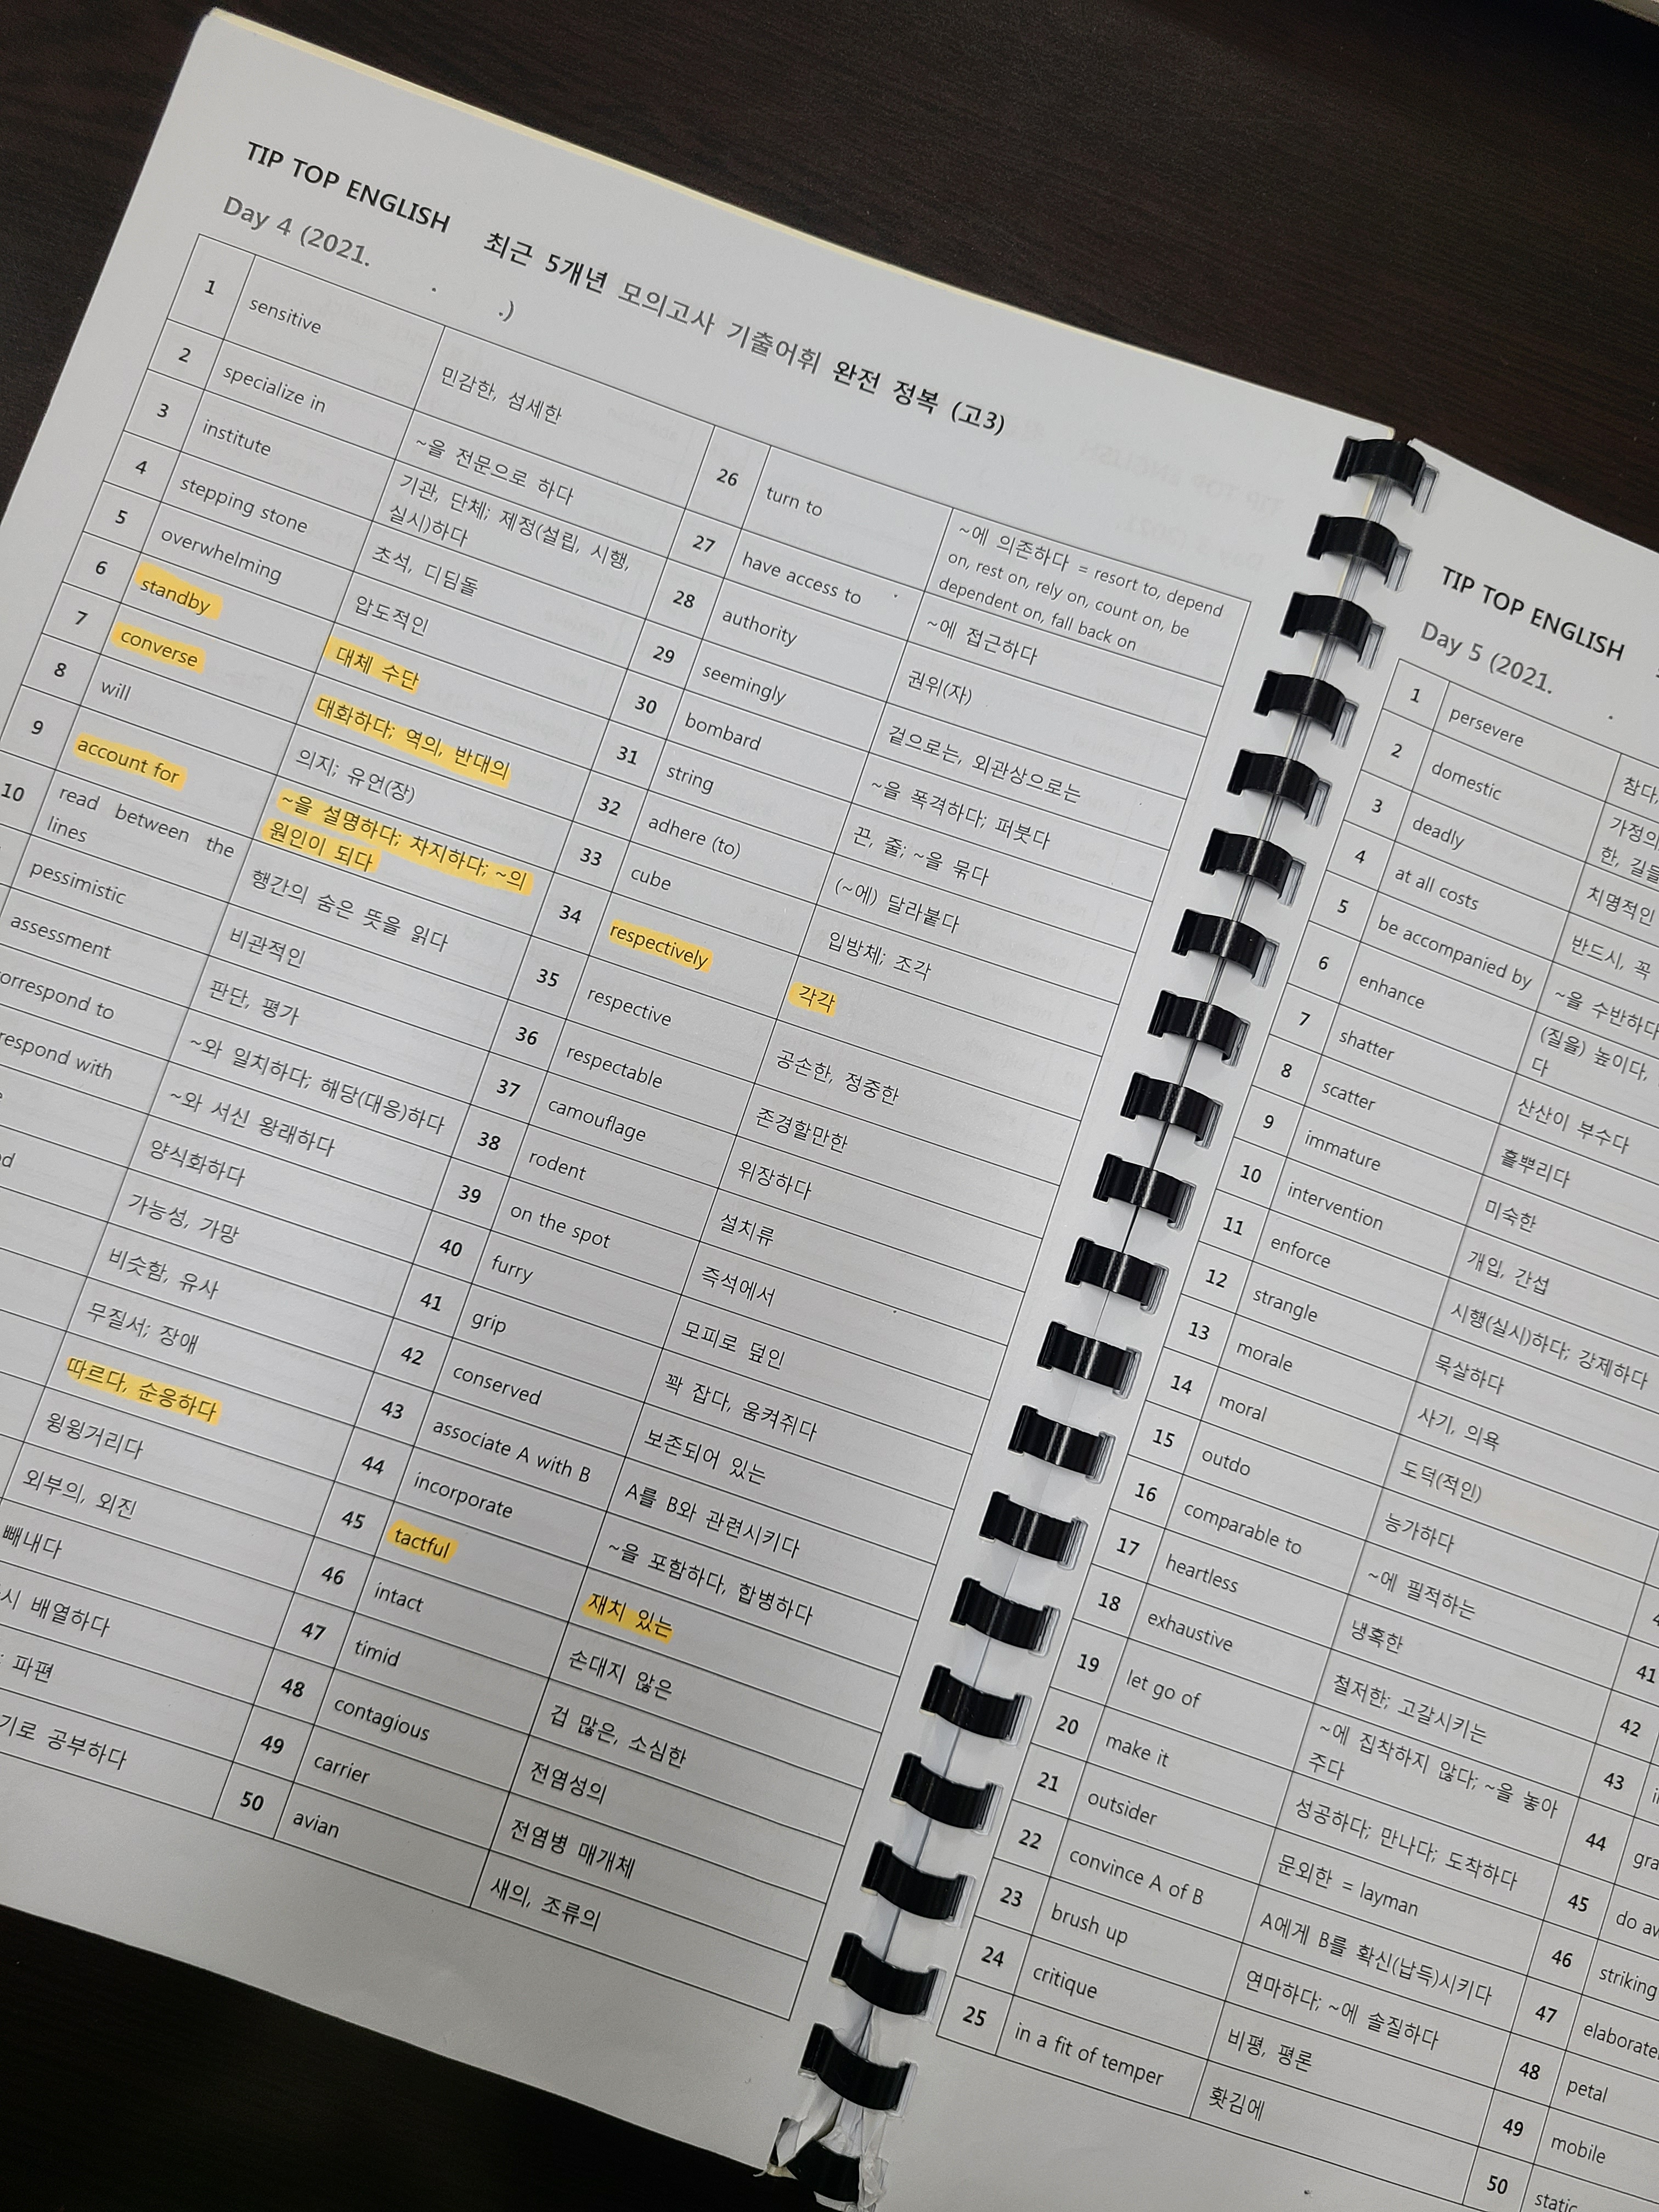 TIP TOP ENGLISH 최근 5개년 모의고사 기출어휘 완전 정복 (고3)
Day 4 (2021. . .)
1 sensitive 민감한, 섬세한
2 specialize in ~을 전문으로 하다
3 institute 기관, 단체; 제정(설립, 시행,
실시)하다
4 stepping stone 초석, 디딤돌
5 overwhelming 압도적인
6 standby 대체 수단
7 converse 대화하다; 역의, 반대의
8 will 의지; 유언(장)
9 account for ~을 설명하다; 차지하다; ~의
원인이 되다
10 read between the
lines 행간의 숨은 뜻을 읽다
pessimistic 비관적인
assessment 판단, 평가
orrespond to ~와 일치하다; 해당(대응)하다
respond with ~와 서신 왕래하다
양식화하다
가능성, 가망
비슷함, 유사
무질서; 장애
따르다, 순응하다
윙윙거리다
외부의, 외진
빼내다
시 배열하다
; 파편
기로 공부하다
26 turn to ~에 의존하다 = resort to, depend
on, rest on, rely on, count on, be
dependent on, fall back on
27 have access to ~에 접근하다
28 authority 권위(자)
29 seemingly 겉으로는, 외관상으로는
30 bombard ~을 폭격하다; 퍼붓다
31 string 끈, 줄; ~을 묶다
32 adhere (to) (~에) 달라붙다
33 cube 입방체; 조각
34 respectively 각각
35 respective 공손한, 정중한
36 respectable 존경할만한
37 camouflage 위장하다
38 rodent 설치류
39 on the spot 즉석에서
40 furry 모피로 덮인
41 grip 꽉 잡다, 움켜쥐다
42 conserved 보존되어 있는
43 associate A with B A를 B와 관련시키다
44 incorporate ~을 포함하다, 합병하다
45 tactful 재치 있는
46 intact 손대지 않은
47 timid 겁 많은, 소심한
48 contagious 전염성의
49 carrier 전염병 매개체
50 avian 새의, 조류의
TIP TOP ENGLISH
Day 5 (2021. .
1 persevere 참다,
2 domestic 가정의
한, 길들
3 deadly 치명적인
4 at all costs 반드시, 꼭
5 be accompanied by ~을 수반하다
6 enhance (질을) 높이다,
다
7 shatter 산산이 부수다
8 scatter 흩뿌리다
9 immature 미숙한
10 intervention 개입, 간섭
11 enforce 시행(실시)하다; 강제하다
12 strangle 묵살하다
13 morale 사기, 의욕
14 moral 도덕(적인)
15 outdo 능가하다
16 comparable to ~에 필적하는
17 heartless 냉혹한
18 exhaustive 철저한; 고갈시키는
19 let go of ~에 집착하지 않다; ~을 놓아
주다
20 make it 성공하다; 만나다; 도착하다
21 outsider 문외한 = layman
22 convince A of B A에게 B를 확신(납득)시키다
23 brush up 연마하다; ~에 솔질하다
24 critique 비평, 평론
25 in a fit of temper 홧김에
41
42
43
44 gra
45 do aw
46 striking
47 elaborate
48 petal
49 mobile
50 static